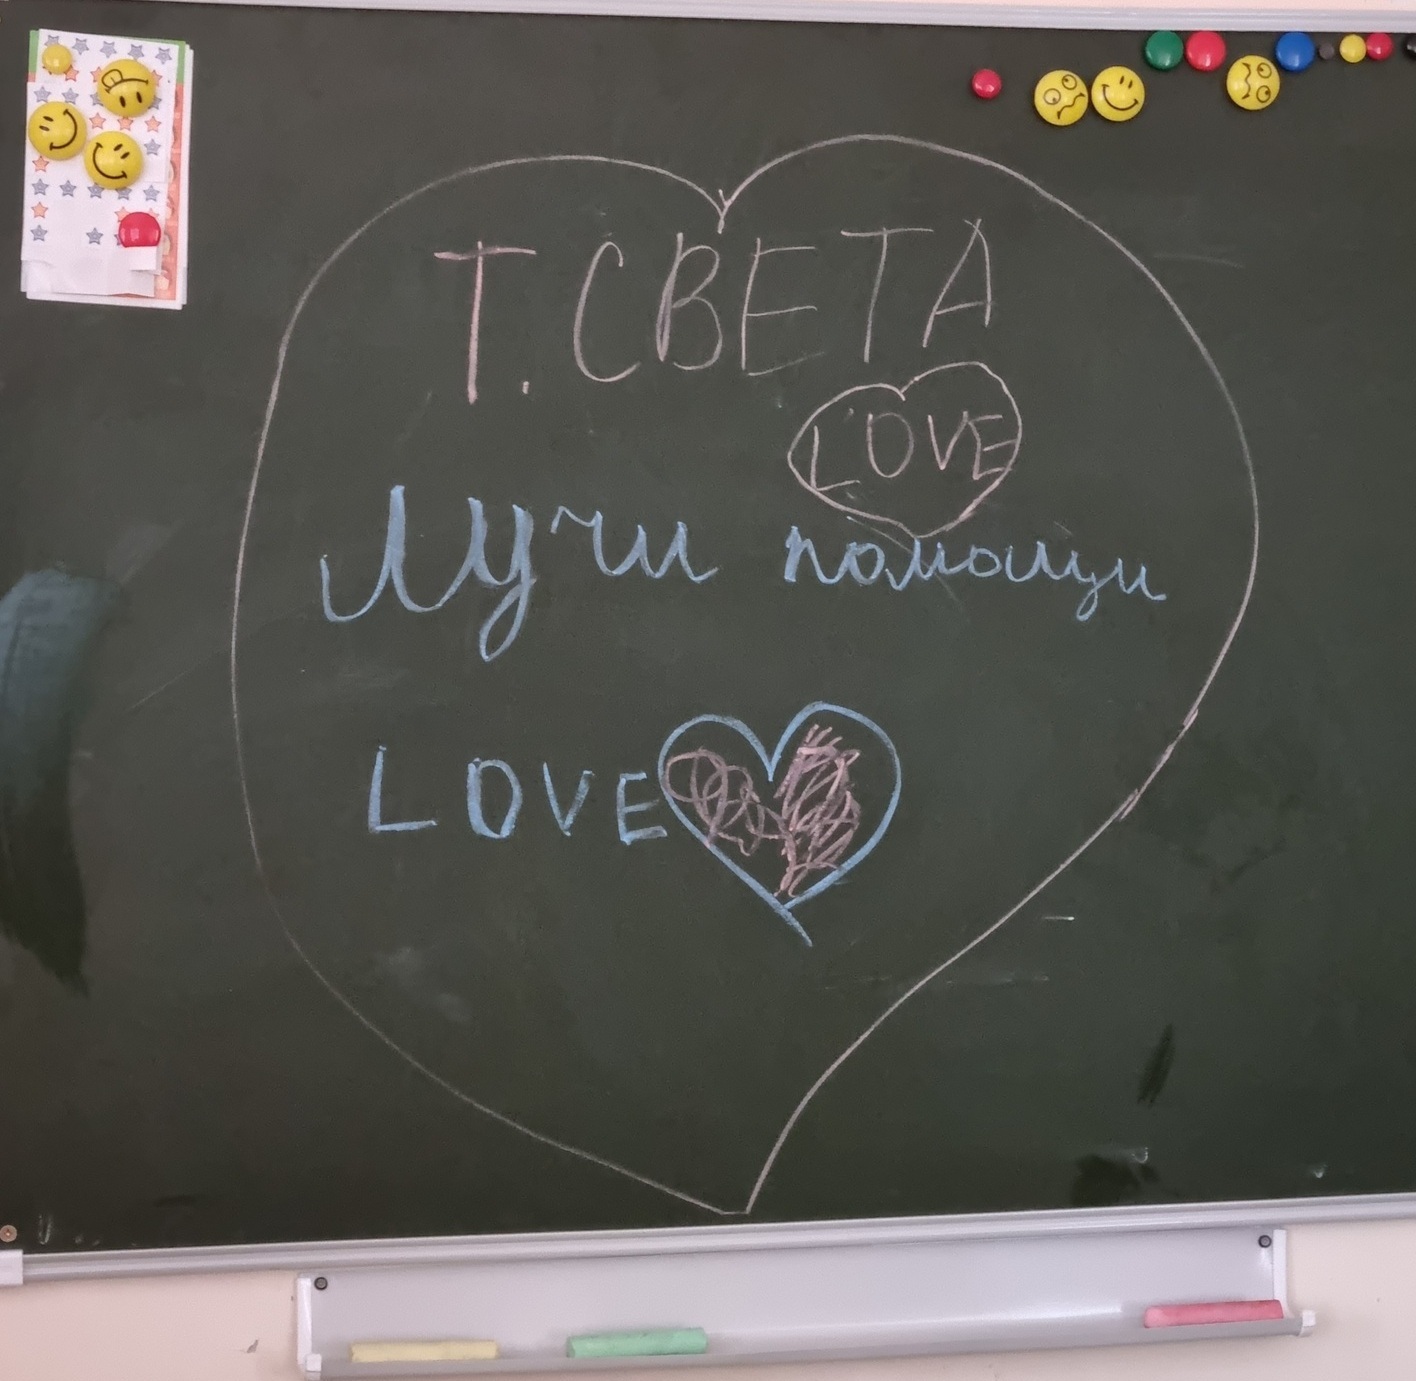 Т. СВЕТА
LOVE
Лучи помощи
LOVE